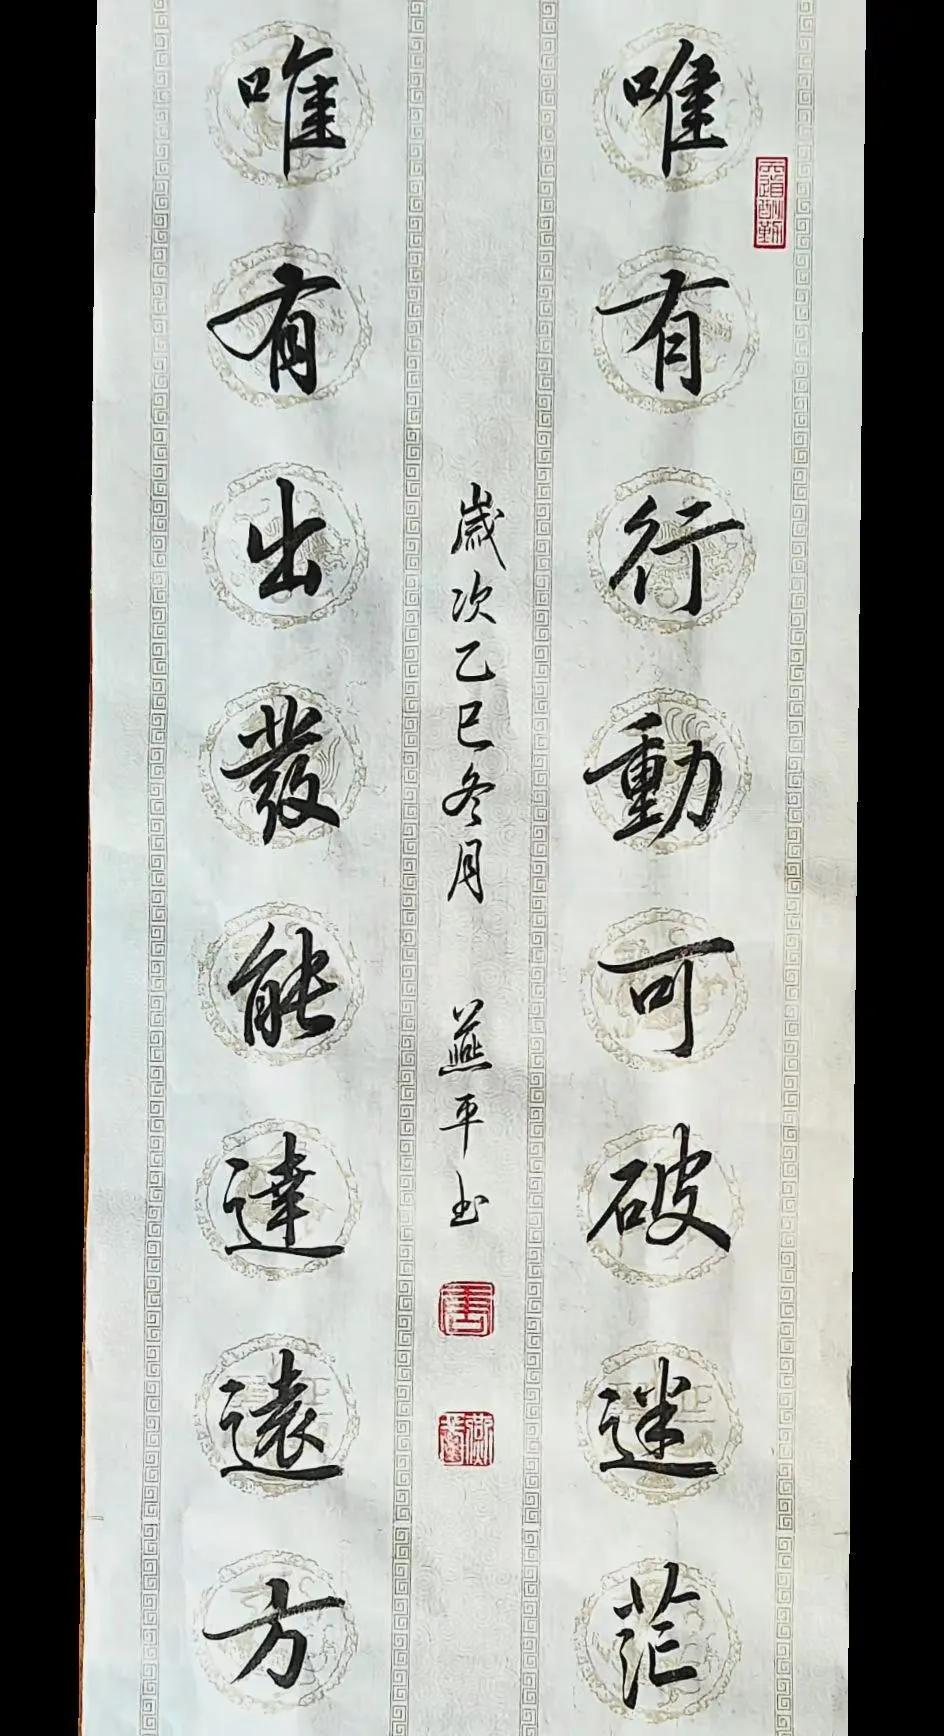 唯有行動可破迷茫
唯有出發能達遠方
歲次乙巳冬月 燕平书
天道酬勤